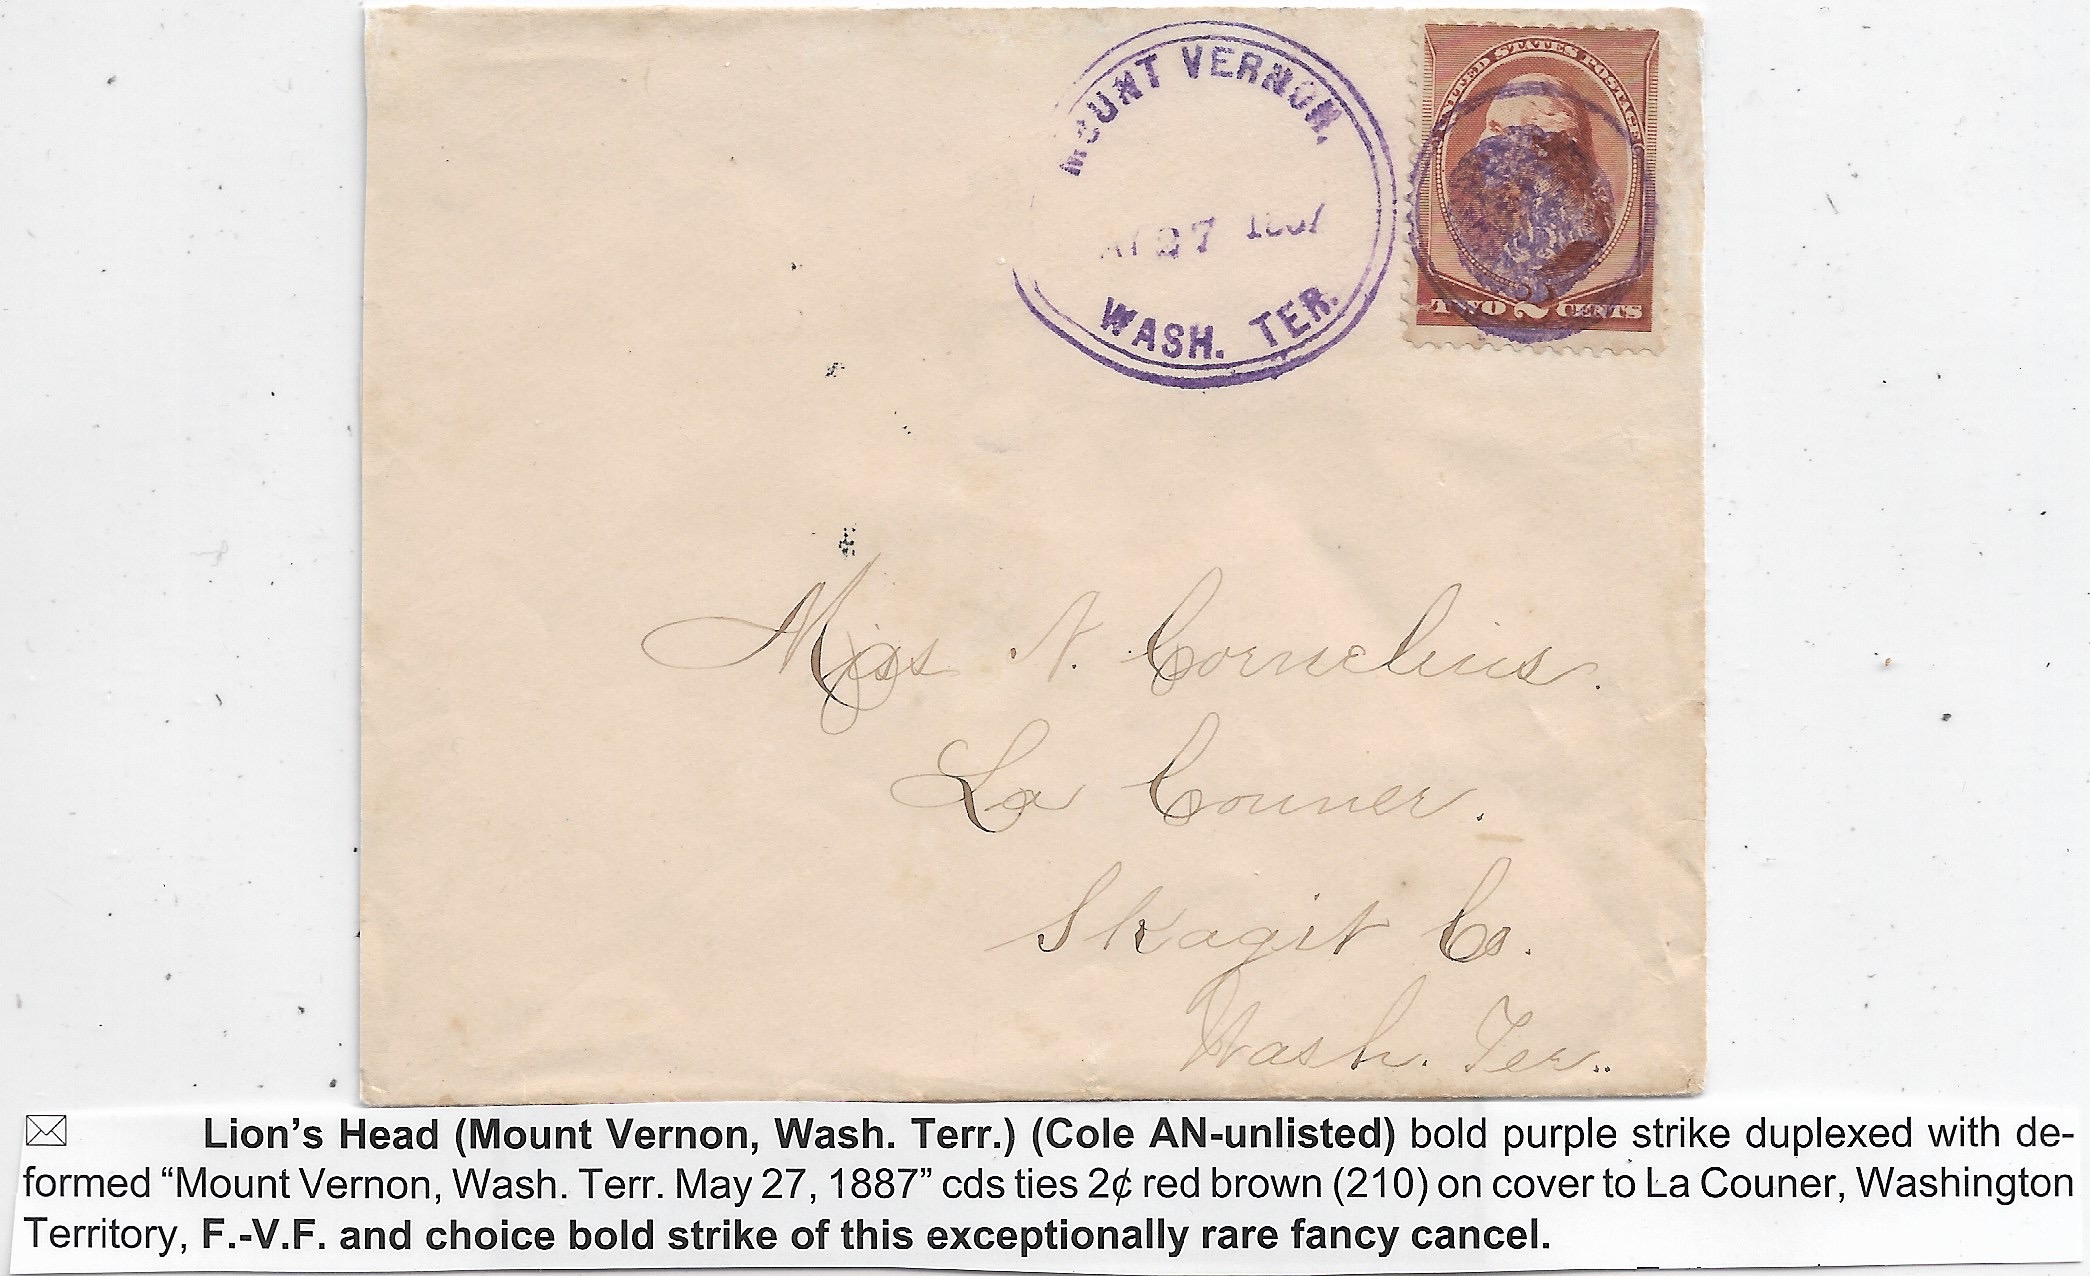 MOUNT VERNON.
27 1887
WASH. TER.
UNITED STATES POSTAGE
TWO 2 CENTS
Miss N. Cornelius.
La Couner.
Skagit Co.
Wash. Ter..
Lion's Head (Mount Vernon, Wash. Terr.) (Cole AN-unlisted) bold purple strike duplexed with de-
formed “Mount Vernon, Wash. Terr. May 27, 1887” cds ties 2¢ red brown (210) on cover to La Couner, Washington
Territory, F.-V.F. and choice bold strike of this exceptionally rare fancy cancel.